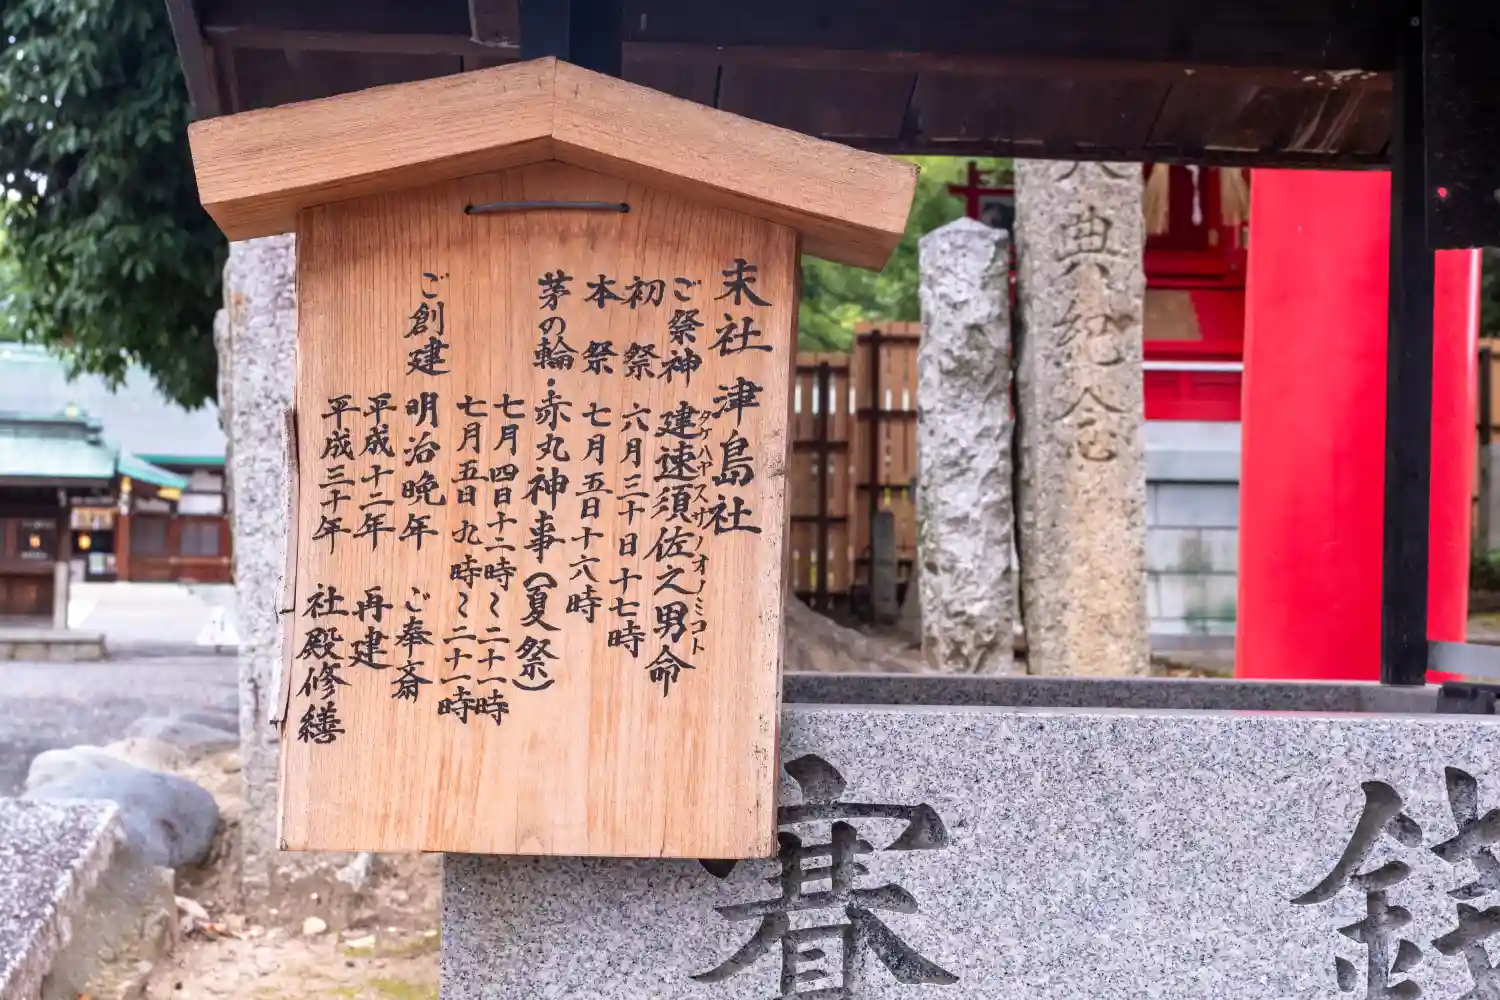 末社 津島社
ご祭神 建速須佐之男命
タケハヤスサノオノミコト
初祭 六月三十日十七時
本祭 七月五日十六時
茅の輪・赤丸神事(夏祭)
七月四日十二時~二十一時
七月五日九時~二十一時
ご創建 明治晩年 ご奉斎
平成十二年 再建
平成三十年 社殿修繕
典紀念
賽銭